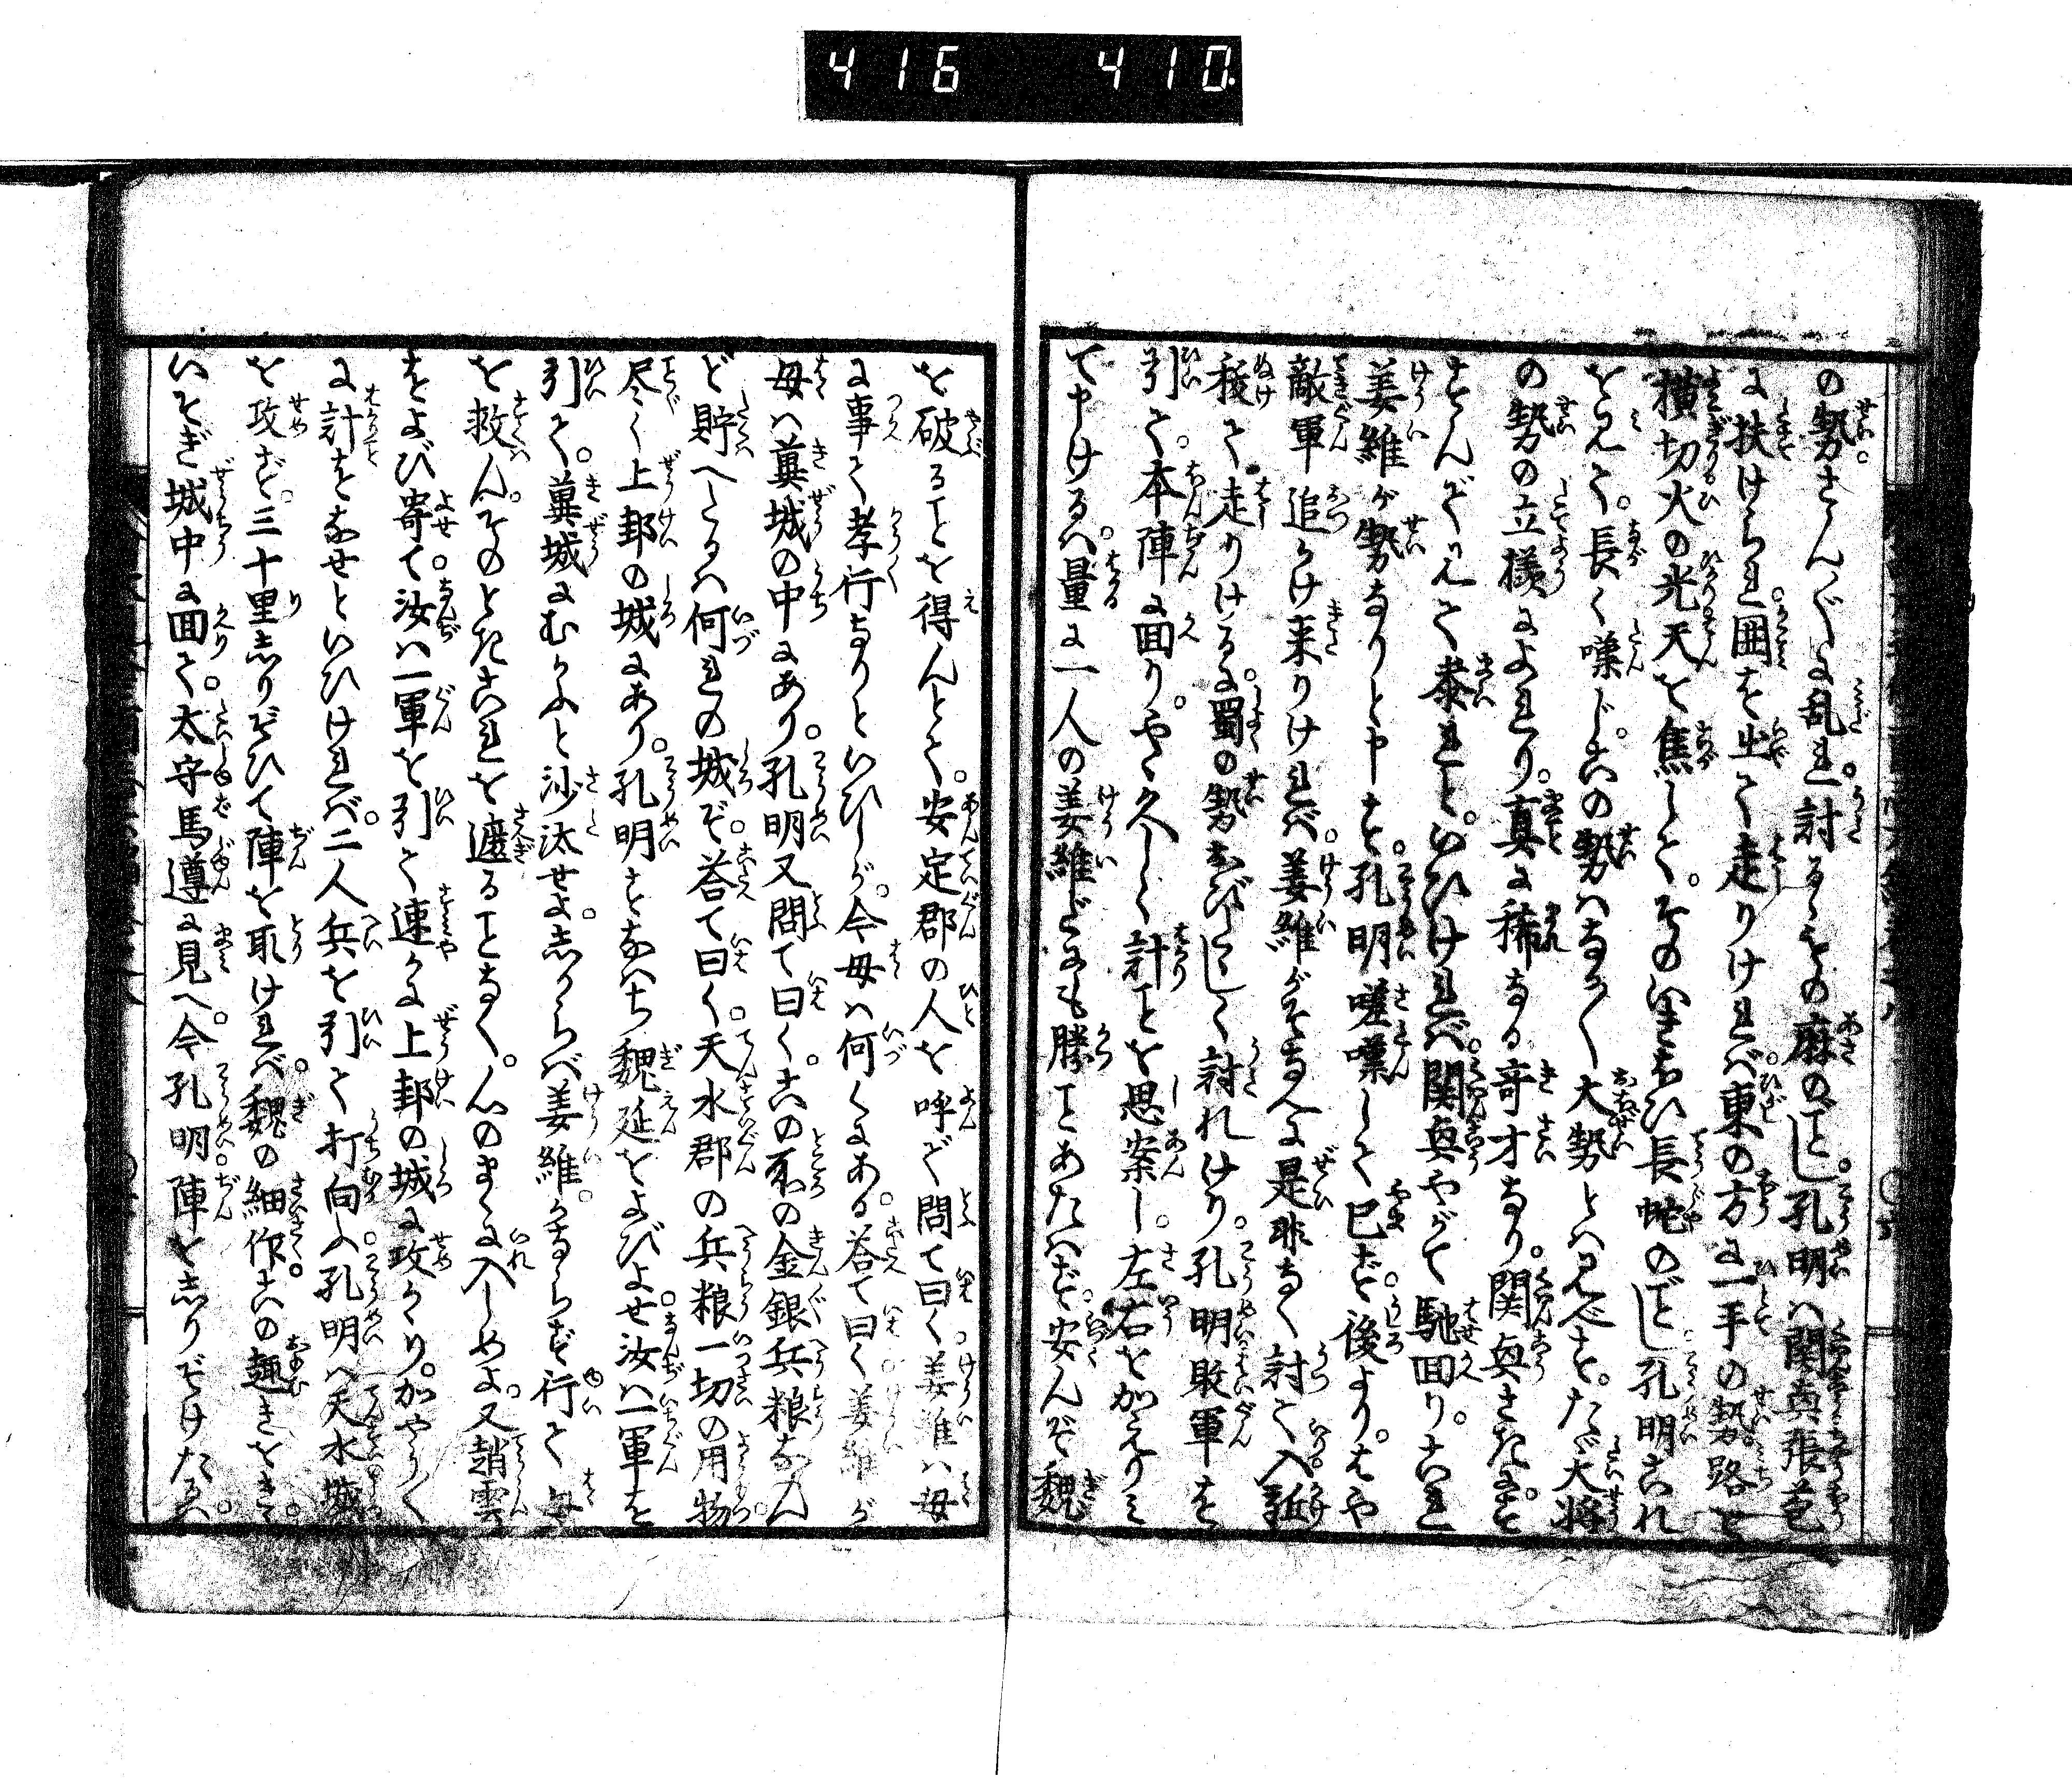 416 410
の勢さんぐに乱れ。討るゝもの麻のごとし。孔明ハ関興張苞
に扶けられ。囲を出て走りけれバ。東の方に一手の勢路を
横切火の光天を焦して。そのいきおひ長蛇のごとし。孔明これ
を見て。長く嘆じ。この勢ハなか〳〵大勢とハ見べきを。たゞ大将
の勢の立様によれり。真に稀なる奇才なり。関興さきにを
とんで見て参れと。いひけれバ。関興やがて馳回り。これ
姜維が勢なりと申を。孔明嗟嘆して已ず。後より。はや
敵軍追つけ来りけれバ。姜維がそなへに是非なく討て入。近
稜て走りける。蜀の勢おびたゝしく討れけり。孔明敗軍を
引て。本陣に回り。やゝ久しく計ことを思案し。左右をかえりミ
て申けるハ。量に一人の姜維だにも勝ことあたハず。安んぞ魏
を破ることを得んとて。安定郡の人を呼で問て曰く。姜維ハ母
に事て孝行なりといひしが。今母ハ何くにある。答て曰く姜維が
母ハ冀城の中にあり。孔明又問て曰く。この所の金銀兵粮なん
ど貯へしるハ何れの城ぞ。荅て曰く。天水郡の兵粮一切の用物。
尽く上邽の城にあり。孔明すなハち魏延をよびよせ。汝ハ一軍を
引て。冀城にむかふと沙汰せよ。しからバ姜維。かならず行て母
を救ん。そのときこれを遮ることなく。心のまゝに入しめよ。又趙雲
をよび寄て。汝ハ一軍を引て速かに上邽の城に攻かゝり。かやう〳〵
に計をなせといひけれバ。二人兵を引て打向ふ。孔明ハ天水城
を攻ず。三十里しりぞひて陣を取けれバ。魏の細作。この趣きをきゝ。
いそぎ城中に回て。太守馬遵に見へ。今孔明陣をしりぞけたゝハ。